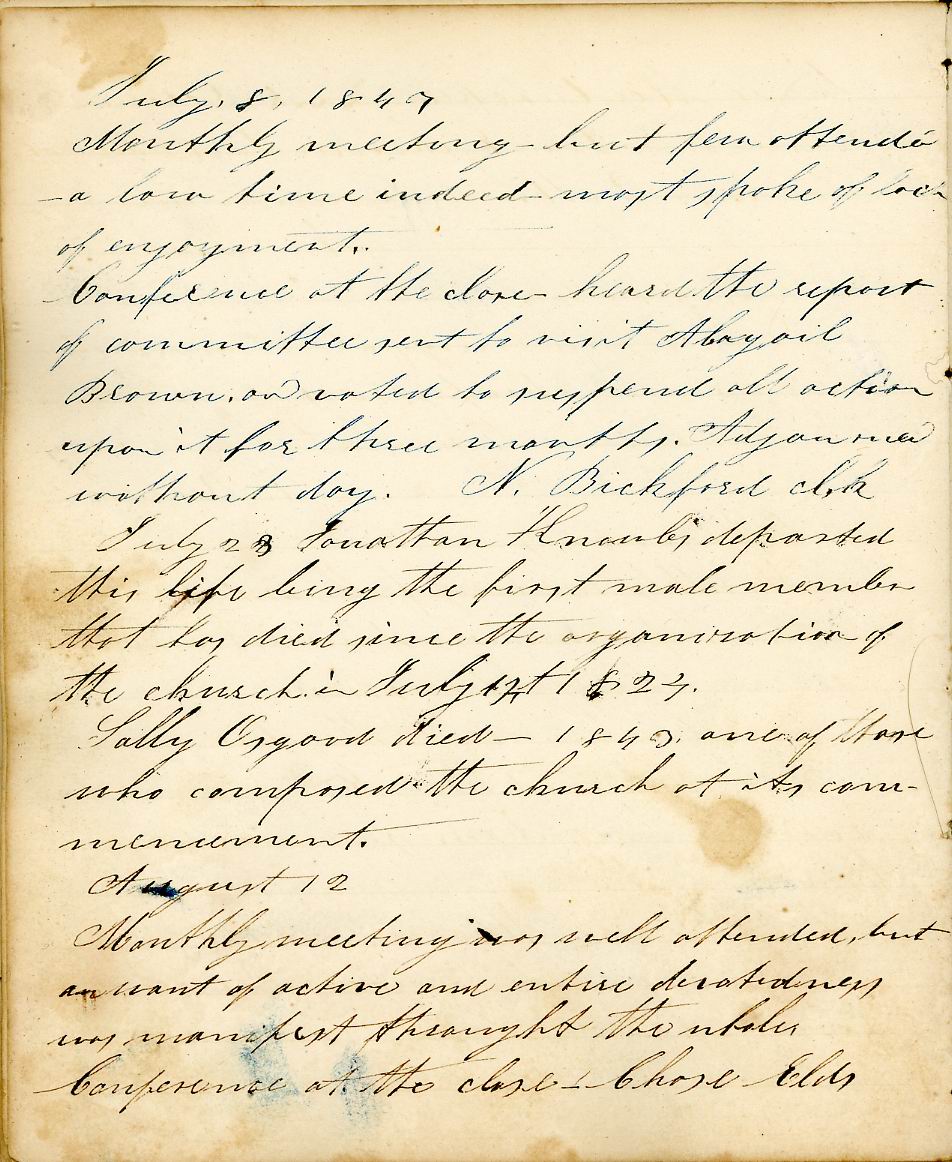 July. 8, 1847
Monthly meeting - but few attend
- a low time indeed - most spoke of lack
of enjoyment.
Conference at the close - heard the report
of committee sent to visit Abagail
Brown. and voted to suspend all action
upon it for three months. Adjourned
without day. N. Bickford clk
July 28 Jonathan Knowles departed
this life being the first male member
that has died since the organization of
the church in July 1st 182
Sally Osgood died - 184 one of those
who composed the church at its com-
mencement.
August 12
Monthly meeting was well attended, but
a want of active and entire devotedness
was manifest throught the whole
Conference at the close - Chose Eldr